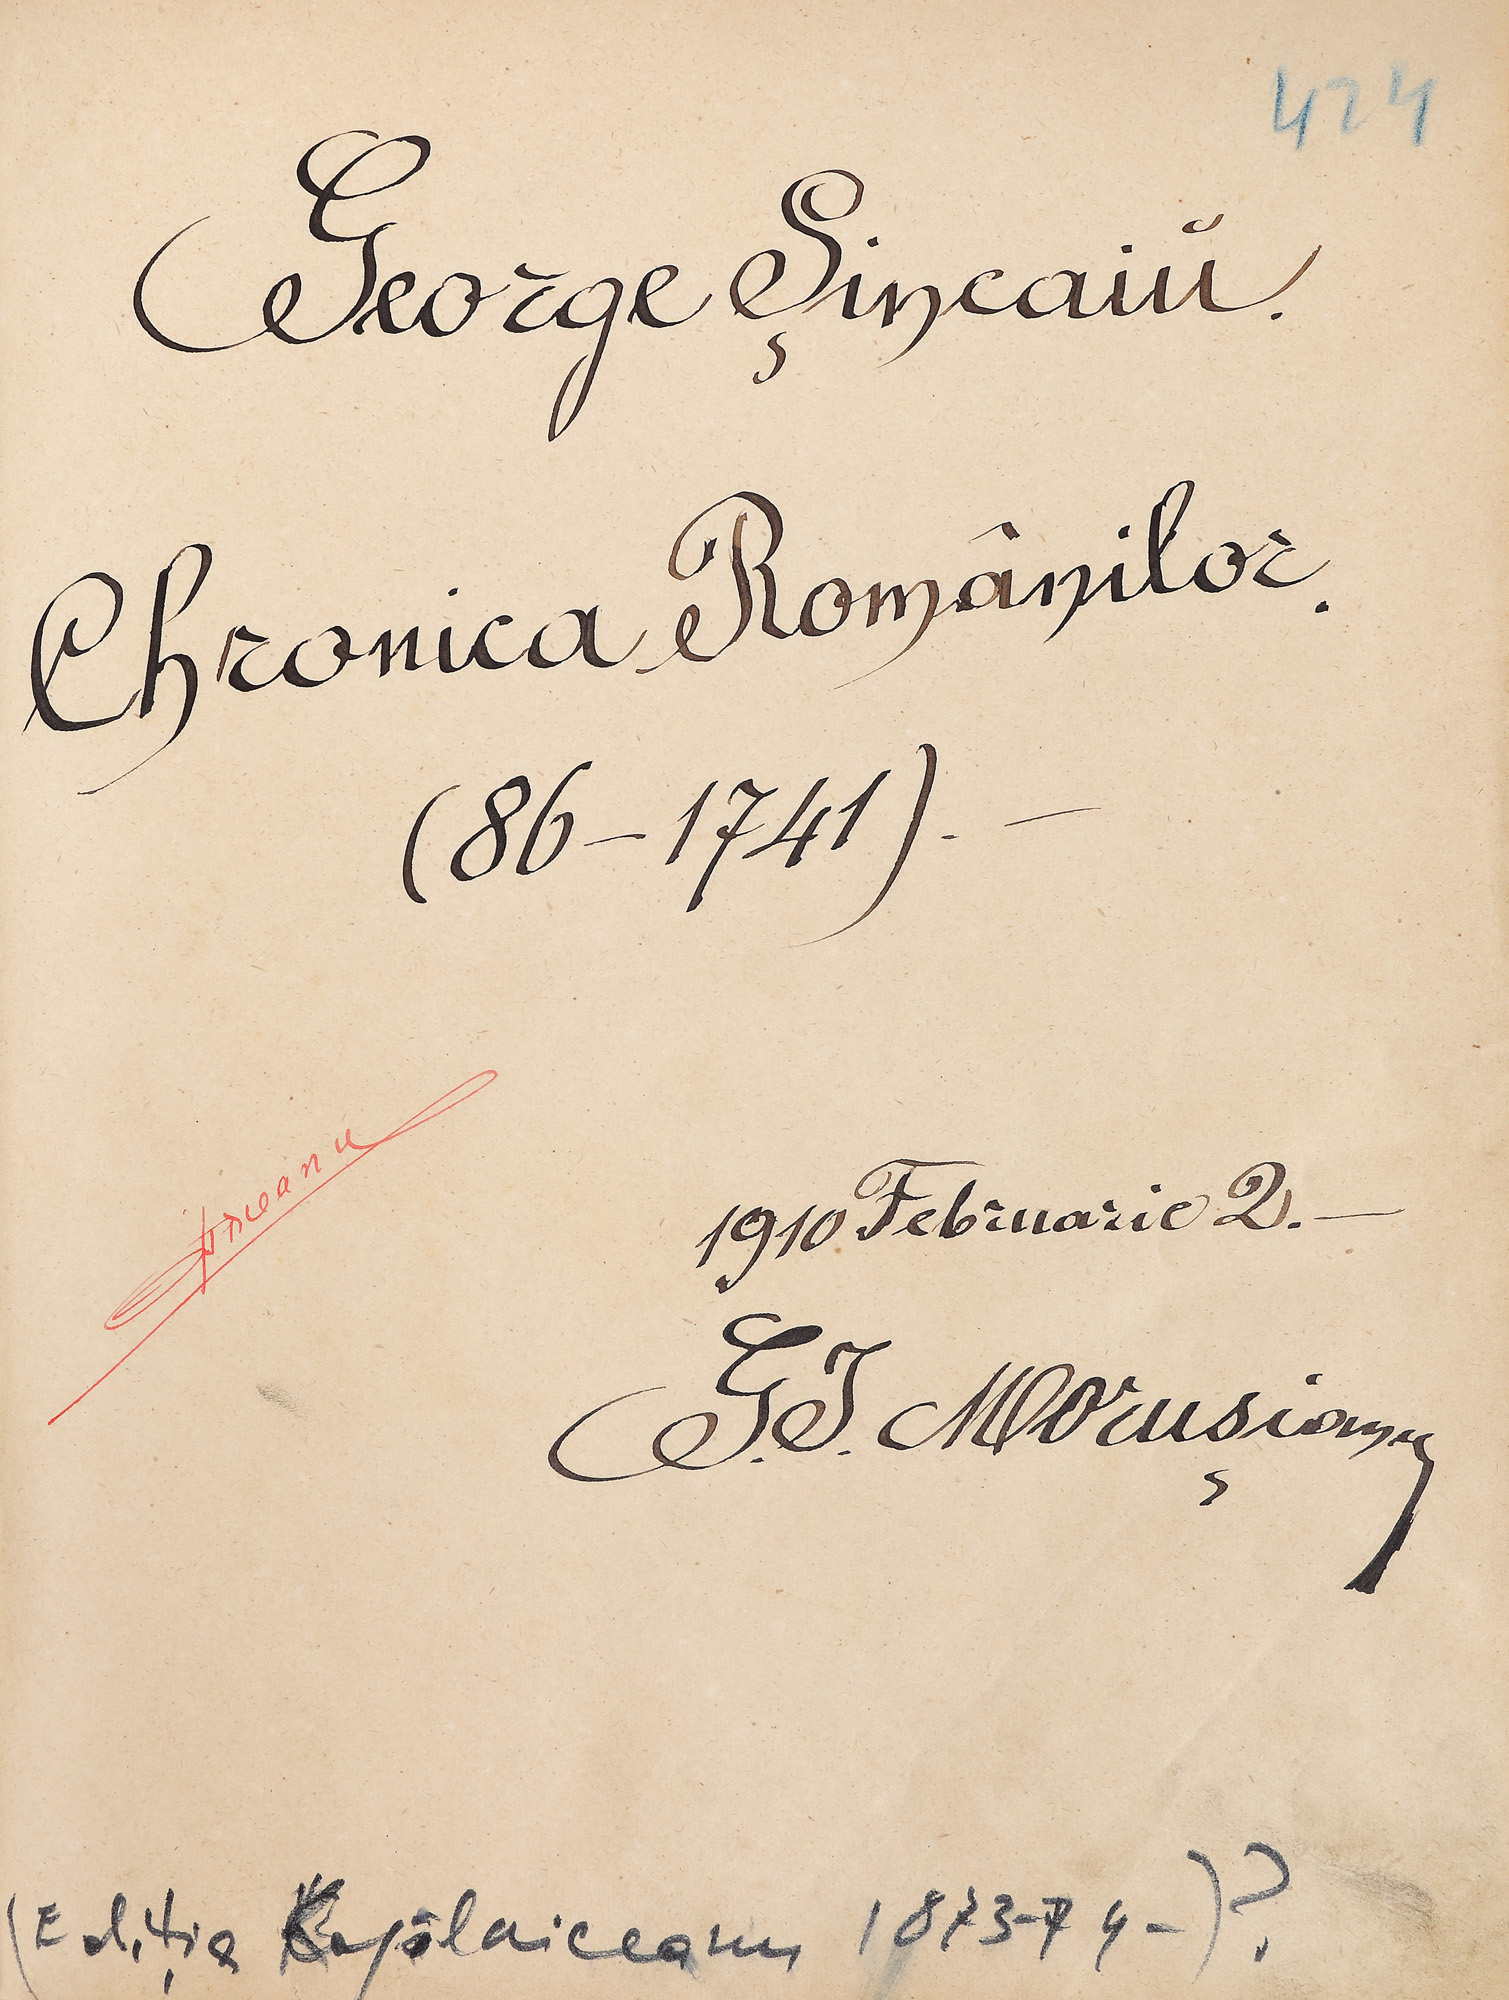 424
George Șincaiŭ.
Chronica Românilor.
(86-1741).-
1910 Februarie 2.-
G. I. Morușianu
(Ediția 1873-74-)?